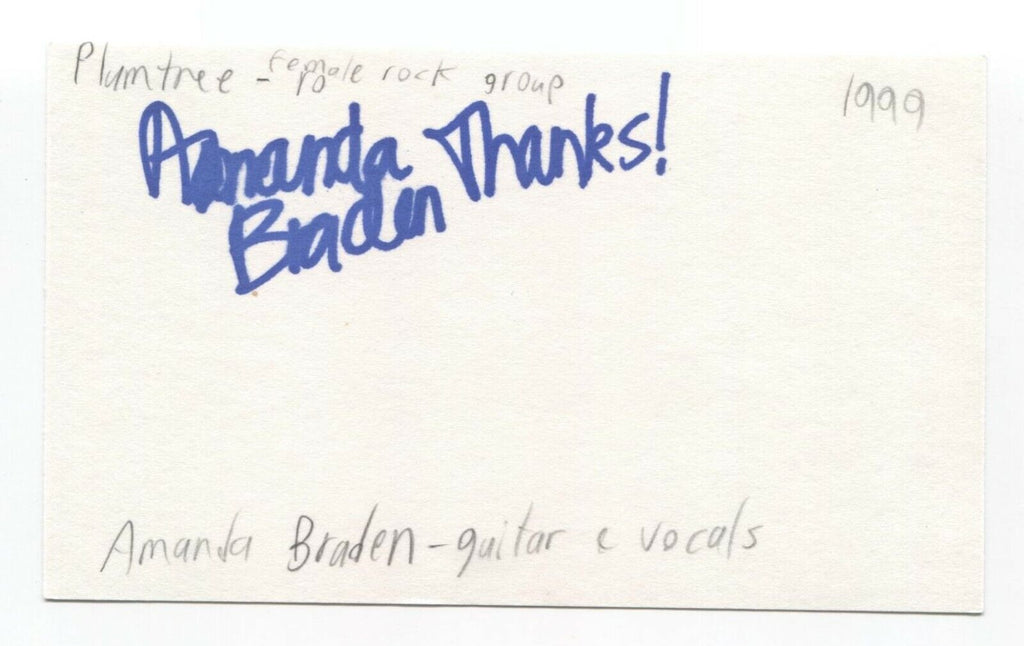 Plumtree - female rock group
1999
Amanda Thanks!
Braden
Amanda Braden - guitar & vocals